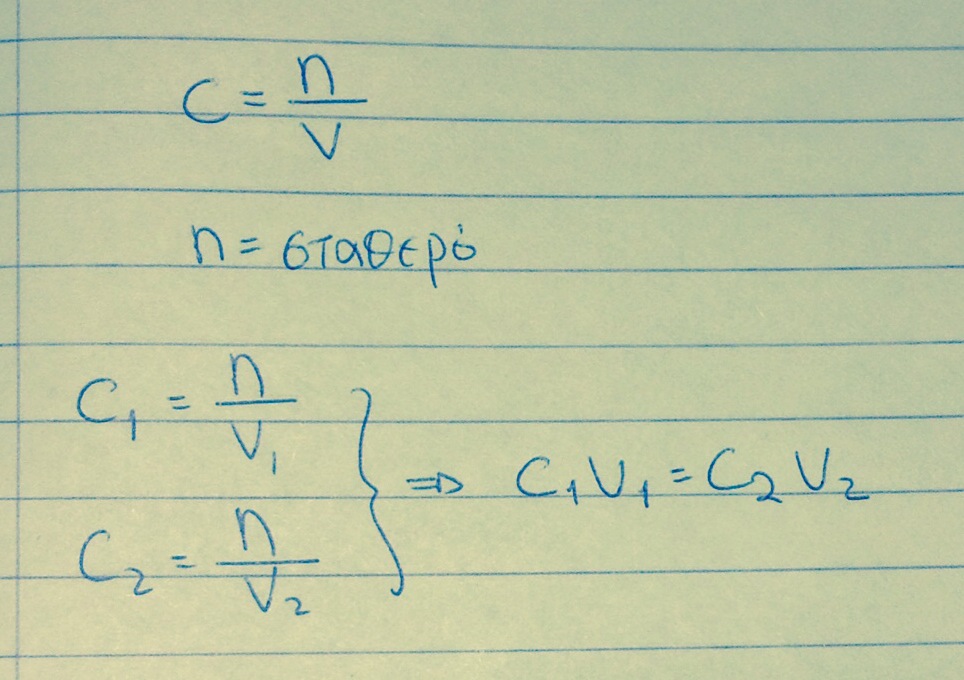 C = n/V
n = σταθερό
C₁ = n/V₁
C₂ = n/V₂
} ⇒ C₁V₁ = C₂V₂